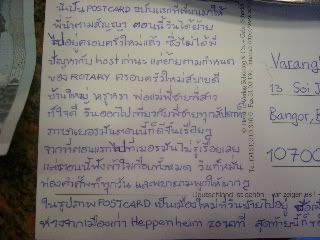 นี่เป็น POSTCARD ฉบับแรกที่ส่งมาให้
พี่น้ำตามสัญญา ตอนนี้วินได้ย้าย
ไปอยู่ครอบครัวใหม่แล้ว ซึ่งไม่ได้มี
ปัญหากับ host เก่านะ แต่ย้ายตามกำหนด
ของ ROTARY ครอบครัวใหม่สบายดี
บ้านใหญ่ หรูหรา พ่อแม่พี่ชายพี่สาว
ก็ใจดี วินออกไปเที่ยวกับพี่ชายทุกสัปดาห์
ภาษาเยอรมันตอนนี้ก็ดีขึ้นเรื่อยๆ
จากที่ตอนแรกไปที่เยอรมันไม่รู้เรื่องเลย
แต่ตอนนี้ฟังเข้าใจเกือบทั้งหมด วินก็หมั่น
ท่องคำศัพท์ทุกวัน และพยายามพูดให้มากๆ
ในรูปภาพ POSTCARD เป็นเมืองใหม่ที่วินย้ายไปอยู่ ชื่อ
ห่างจากเมืองเก่า Heppenheim 20 นาที สุดท้ายนี้ก็
Varang
13 Soi J
Bangor, B
10700
Deutschland ist schön